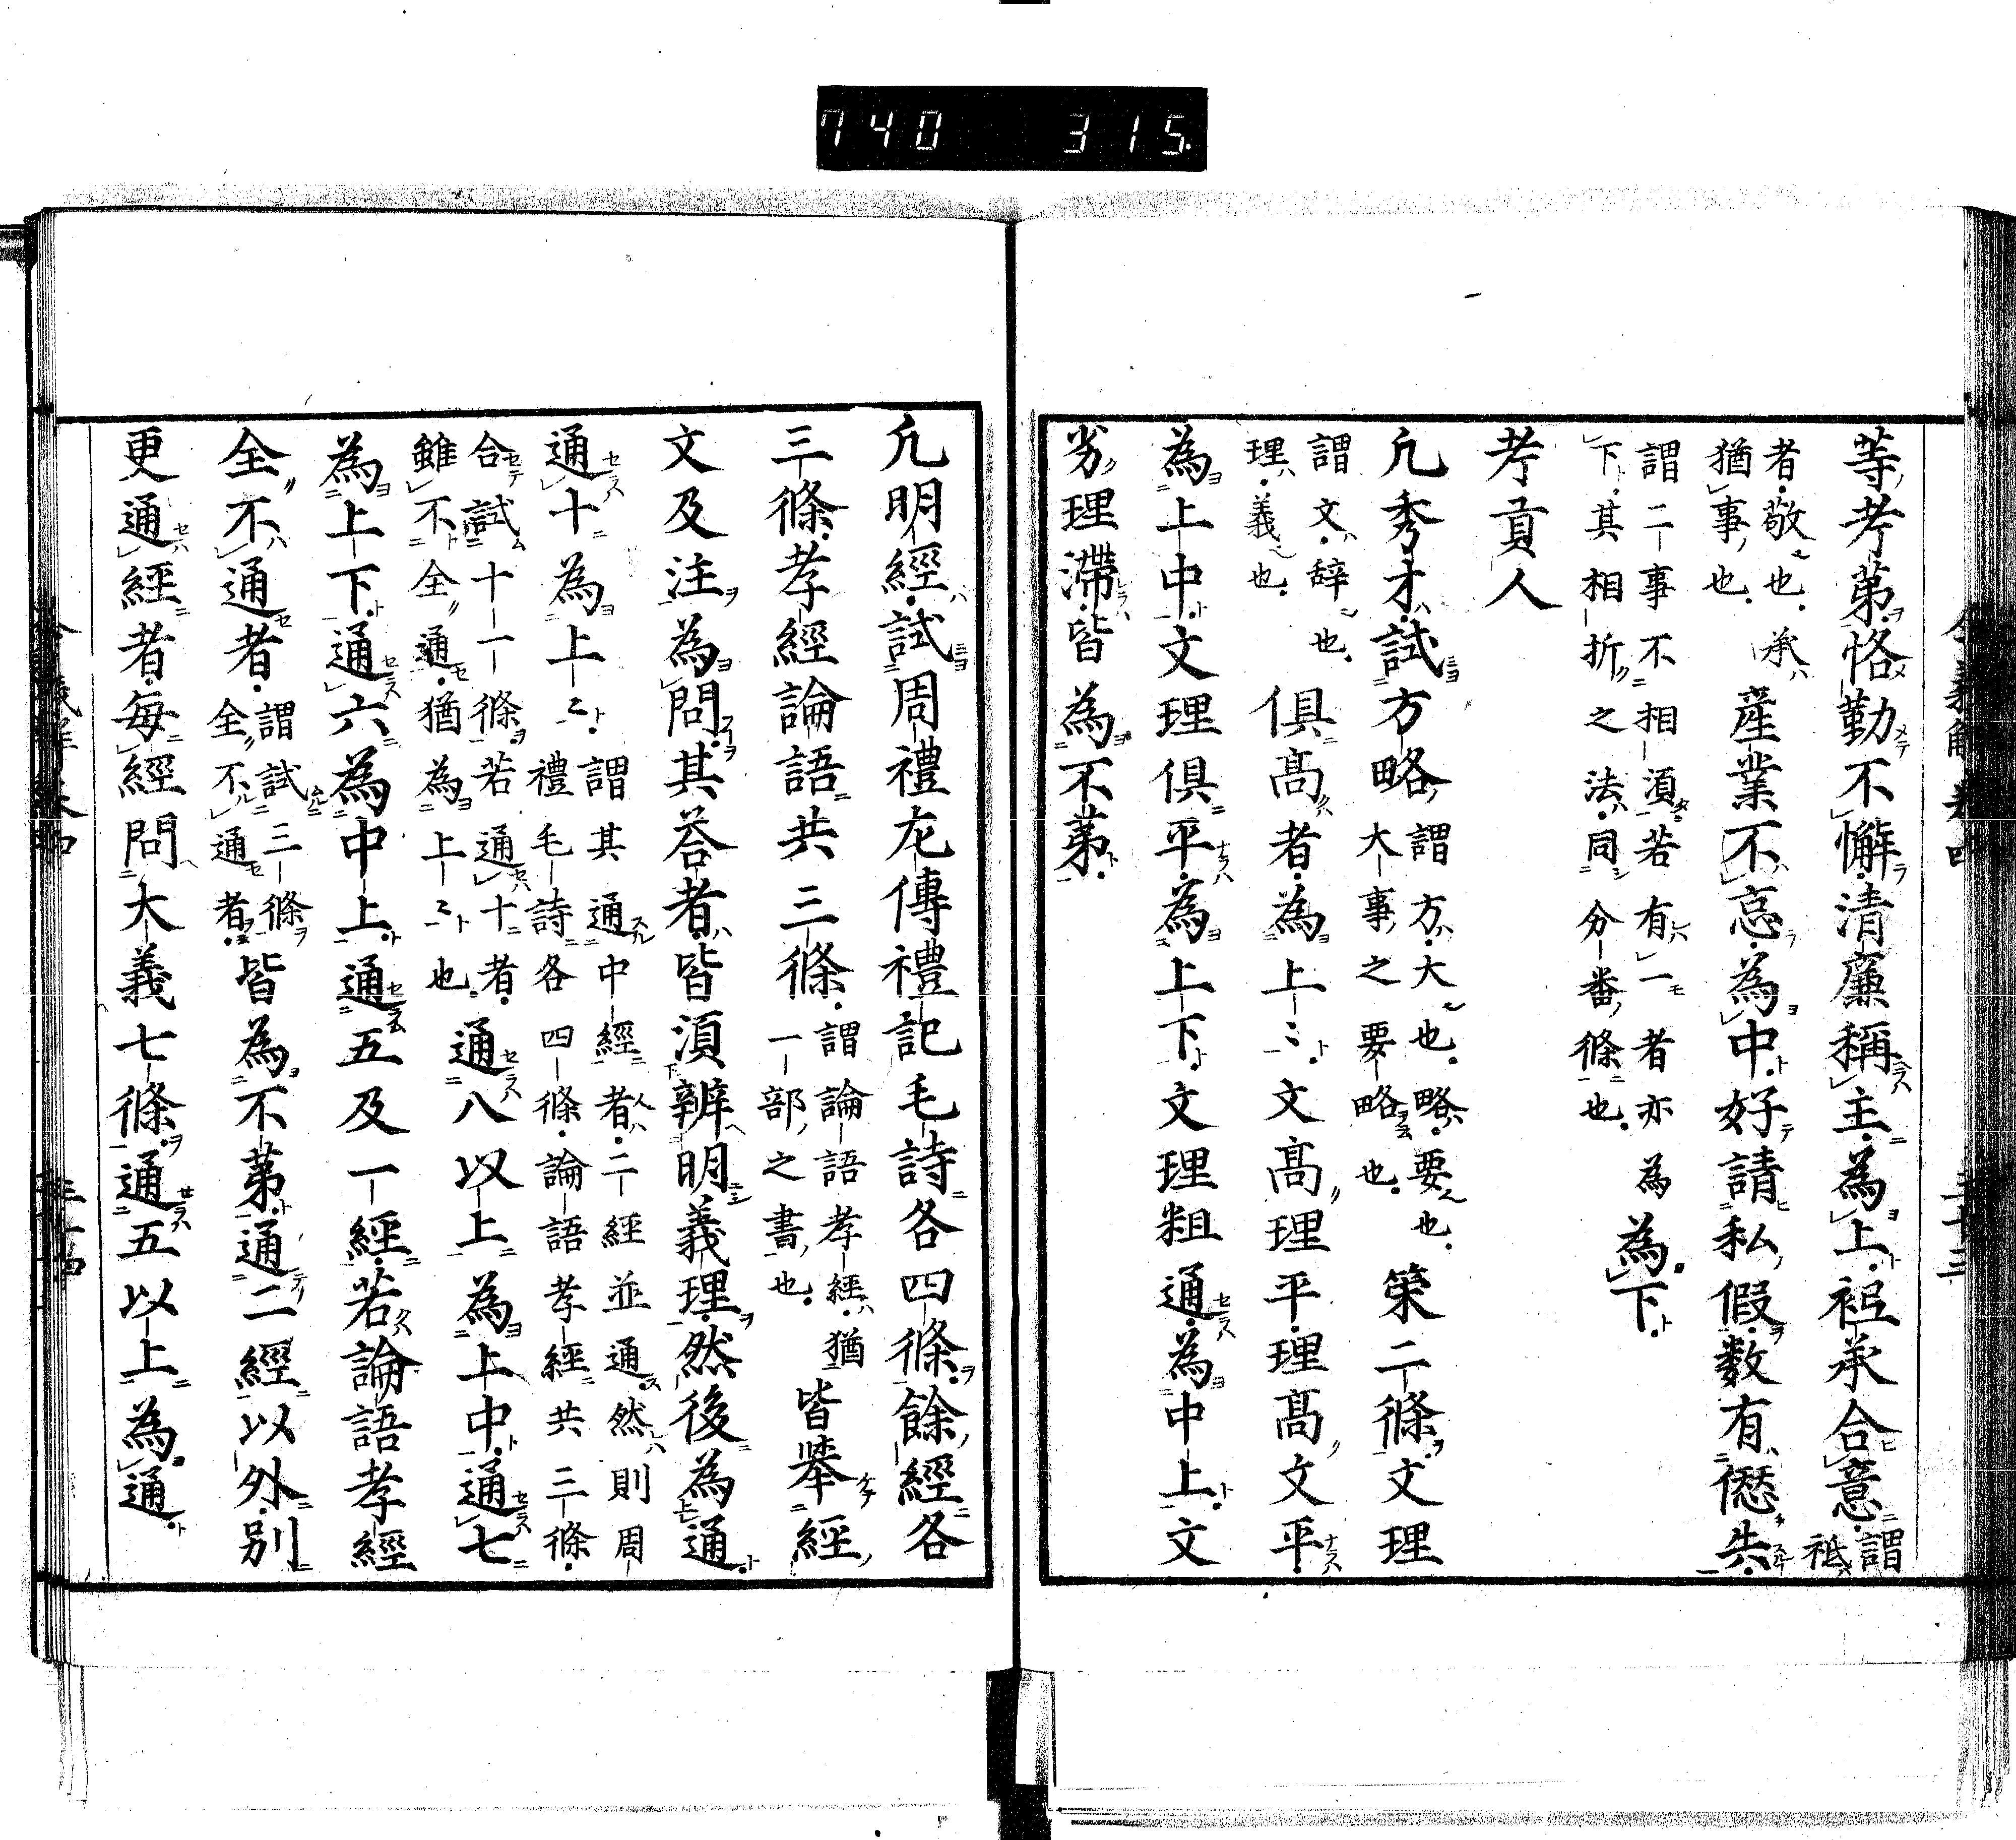 740 315
等考第恪勤不懈清廉稱主為上祗承合意謂祗
者敬也承猶事也產業不怠為中好請私假数有愆失
謂二事不相須若有一者亦為下其相折之法同分番條也為下
考貢人
凢秀才試方略謂方大也略要也大事之要略也策二條文理
謂文辞也理義也俱髙者為上〻文髙理平理髙文平
為上中文理俱平為上下文理粗通為中上文
劣理滯皆為不第
凢明經試周禮左傳禮記毛詩各四條餘經各
三條孝經論語共三條謂論語孝經猶一部之書也皆舉經
文及注為問其荅者皆須辨明義理然後為通
通十為上〻謂其通中經者二經並通然則周禮毛詩各四條論語孝經共三條
合試十一條若通十者雖不全通猶為上〻也通八以上為上中通七
為上下通六為中上通五及一經若論語孝經
全不通者謂試三條全不通者皆為不第通二經以外別
更通經者每經問大義七條通五以上為通